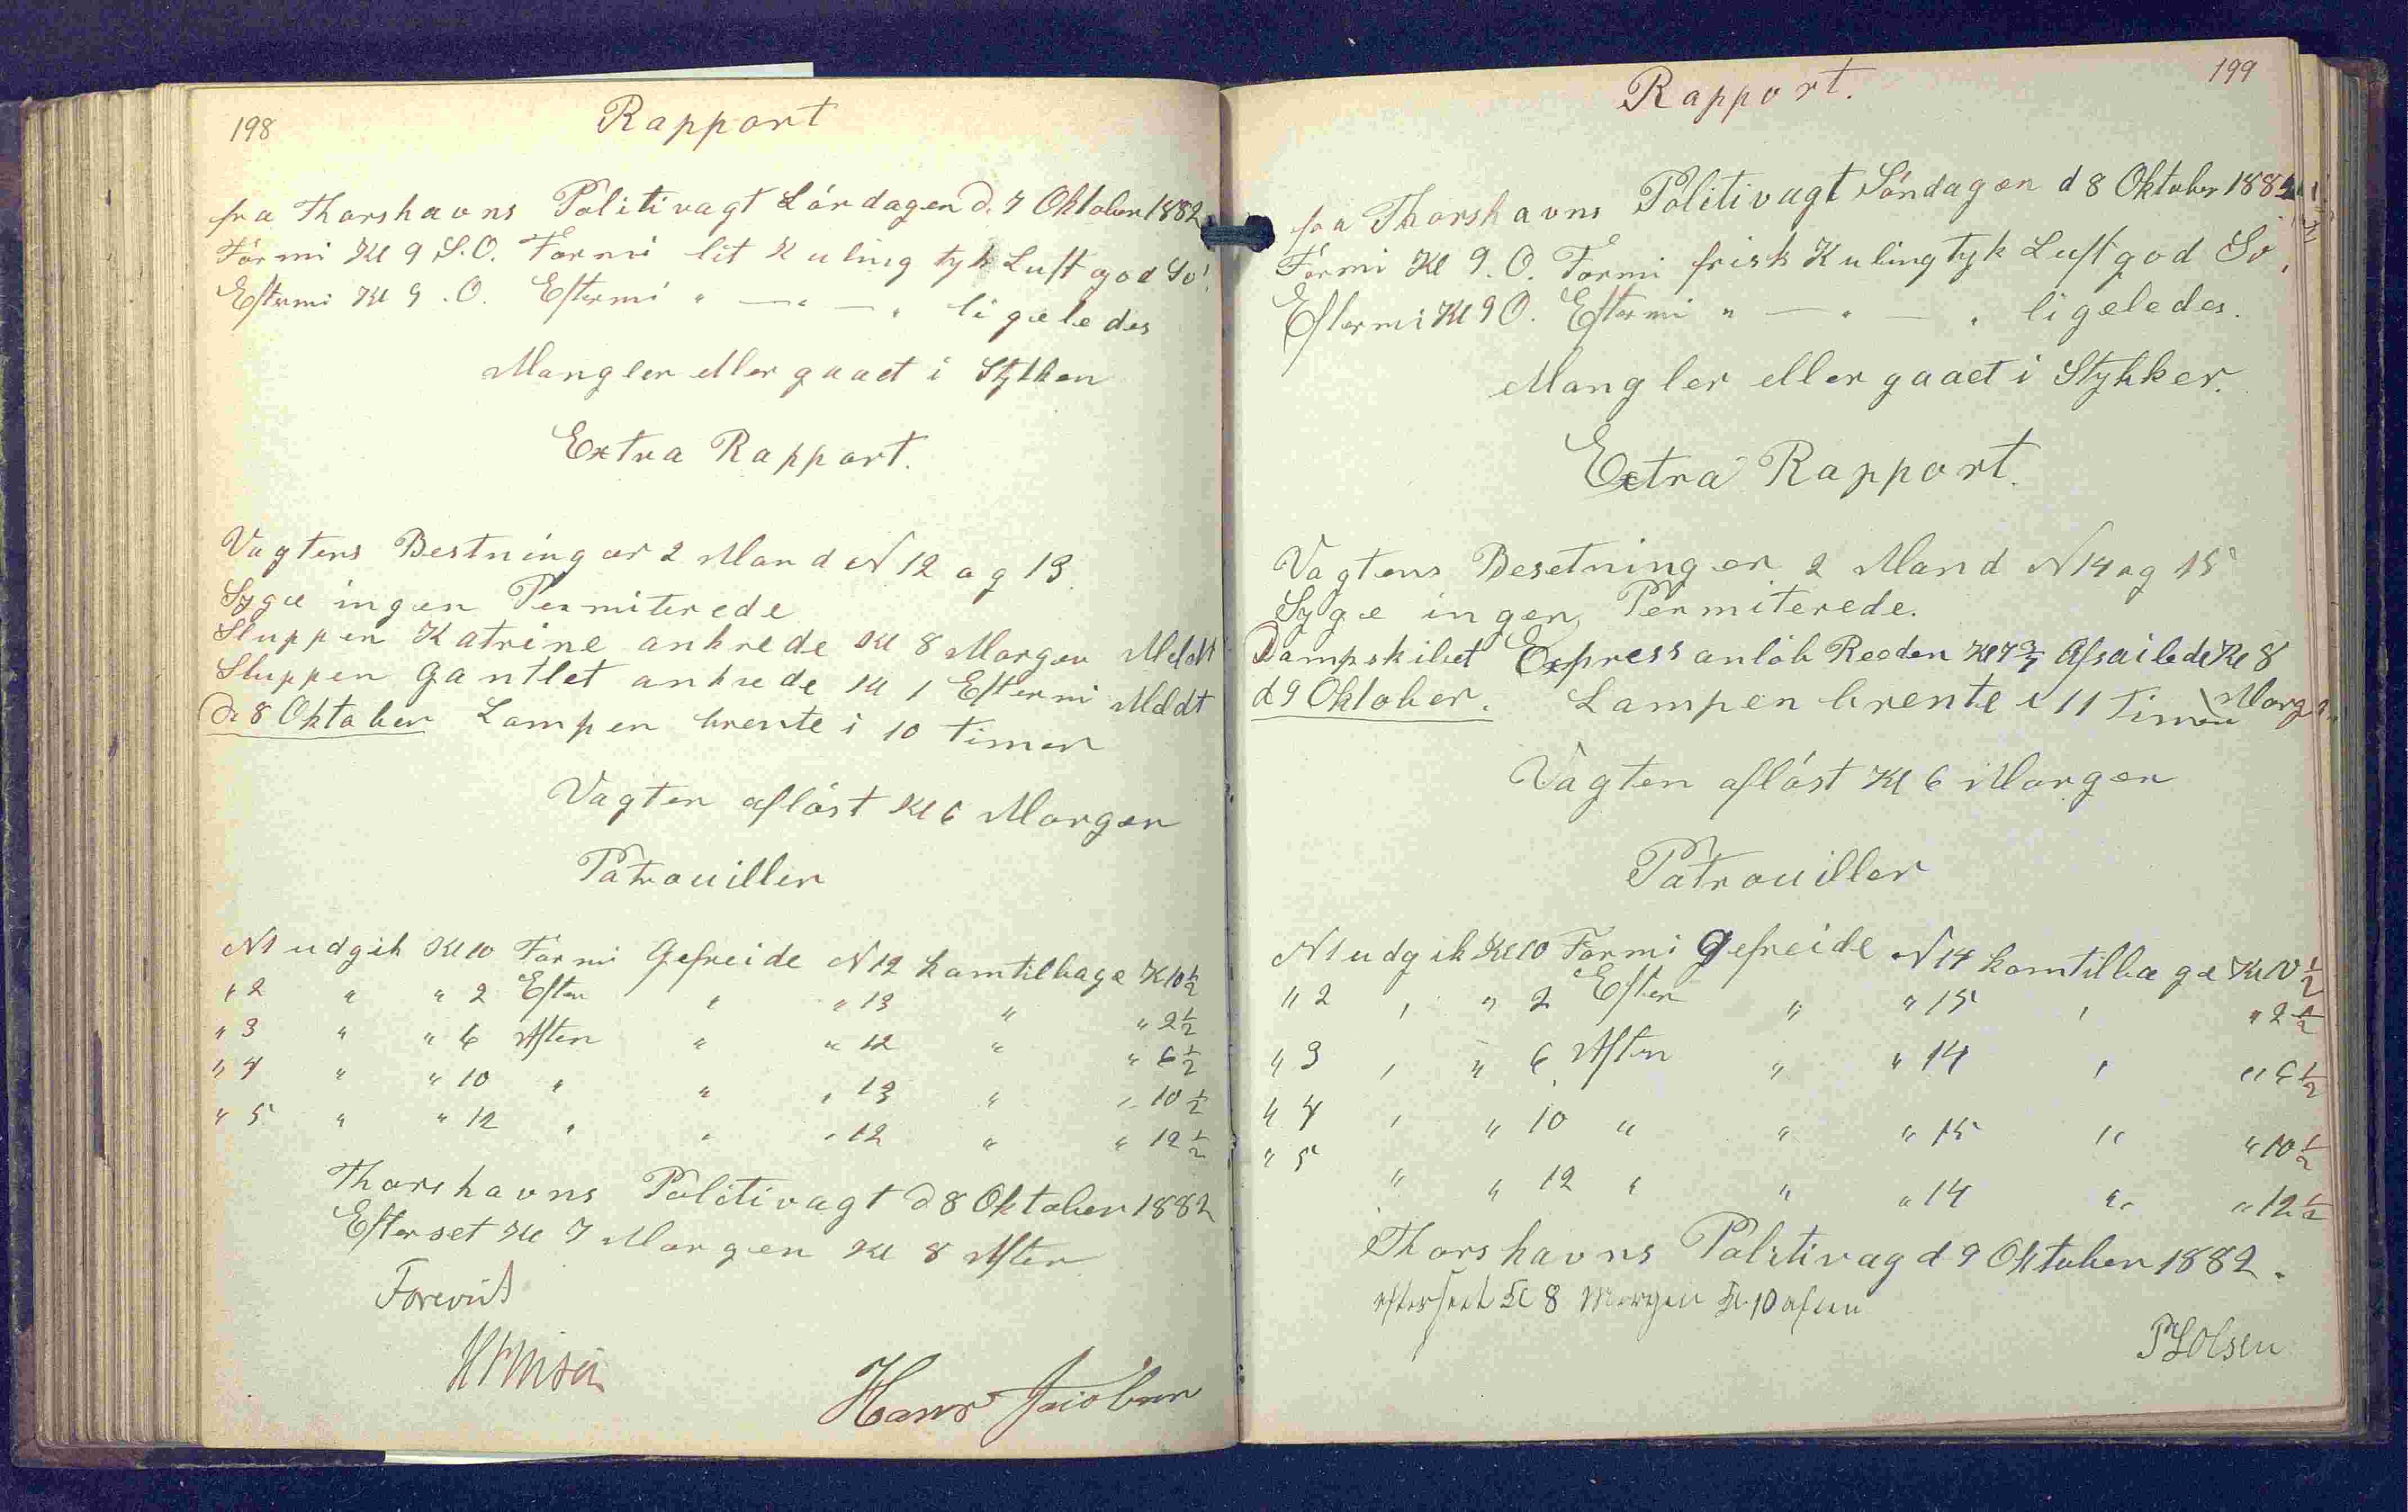 198
Rapport
fra Thorshavns Politivagt Lördagen d. 7 Oktober 1882
Formi Kl 9 S.O. Formi lit Kuling tyk Luft god Sö.
Eftermi Kl 9 . O. Eftermi " — " — " ligeledes
Mangler eller gaaet i Stykker
Extra Rapport.
Vagtens Bestning er 2 Mand N 12 og 13.
Syge ingen Permiterede
Sluppen Katrine ankrede Kl 8 Morgen Meldt
Sluppen Gantlet ankrede Kl 1 Eftermi Meldt
d. 8 Oktober Lampen brente i 10 Timer
Vagten aflöst Kl 6 Morgen
Patrouiller
N 1 udgik Kl 10 Formi Gefreide N 12 kom tilbage K 10 ½
" 2 " " 2 Efter " " 13 " " 2 ½
" 3 " " 6 Aften " " 12 " " 6 ½
" 4 " " 10 " " " 13 " " 10 ½
" 5 " " 12 " " " 12 " " 12 ½
Thorshavns Politivagt d 8 Oktober 1882
Efterset Kl 7 Morgen Kl 8 Aften
Forevist
Hans Jacobsen
199
Rapport.
fra Thorshavns Politivagt Söndagen d 8 Oktober 1882
Formi Kl 9. O. Formi frisk Kuling tyk Luft god Sö,
Eftermi Kl 9 O. Eftermi " — " — " ligeledes.
Mangler eller gaaet i Stykker.
Extra Rapport.
Vagtens Besetning er 2 Mand N 14 og 15
Syge ingen, Permiterede.
Dampskibet Express anlöb Reeden Kl Afsailede Kl 8
Morgen
d 9 Oktober. Lampen brente i 11 Timer
Vagten aflöst Kl 6 Morgen
Patrouiller
N 1 udgik Kl 10 Formi Gefreide N 14 kom tilbage Kl 10 ½
" 2 " " 2 Efter " " 15 " " 2 ½
" 3 " " 6 Aften " " 14 " " 6 ½
" 4 " " 10 " " " 15 " " 10 ½
" 5 " " 12 " " " 14 " " 12 ½
Thorshavns Politivag d 9 Oktober 1882.
efterseet Kl 8 Morgen Kl 10 aften
Olsen